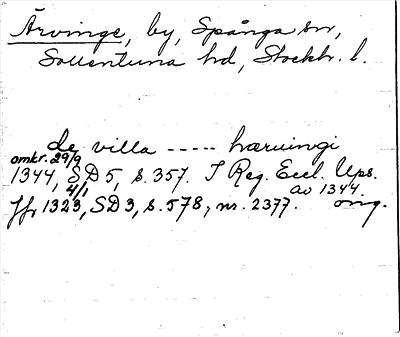 Ärvinge, by, Spånga sn,
Sollentuna hd, Stockh. l.
de villa ----- hæruingi
omkr. 29/9
1344, SD 5, s. 357. I Reg. Eccl. Ups.
av 1344.
4/1
Jfr 1323, SD 3, s. 578, nr. 2377. orig.